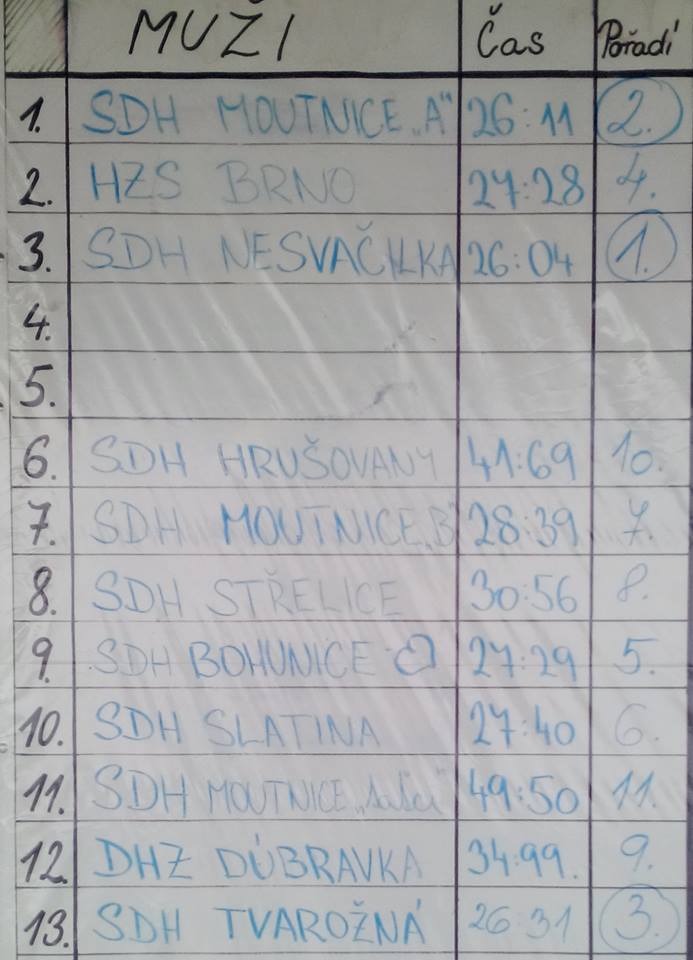 MUŽI Čas Pořadí
1. SDH MOUTNICE „A" 26:11 2.
2. HZS BRNO 27:28 4.
3. SDH NESVAČILKA 26:04 1.
4.
5.
6. SDH HRUŠOVANY 41:69 10.
7. SDH MOUTNICE „B" 28:39 7.
8. SDH STŘELICE 30:56 8.
9. SDH BOHUNICE 27:29 5.
10. SDH SLATINA 27:40 6.
11. SDH MOUTNICE 49:50 11.
12. DHZ DÚBRAVKA 34:99. 9.
13. SDH TVAROŽNÁ 26:31 3.